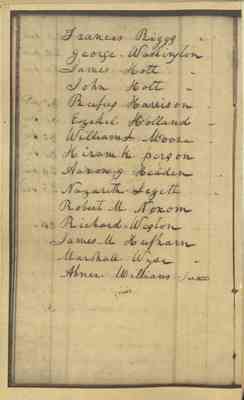 Frances Riggs
George Washington
James Hott
John Holt
Rufus Harrison
Ezekel Holland
William L Moore
Hiram K person
Aaron J Headen
Nazareth Legett
Robert M Noxom
Richard Weston
James M Hufharn
Marshall Wyse
Abner Williams